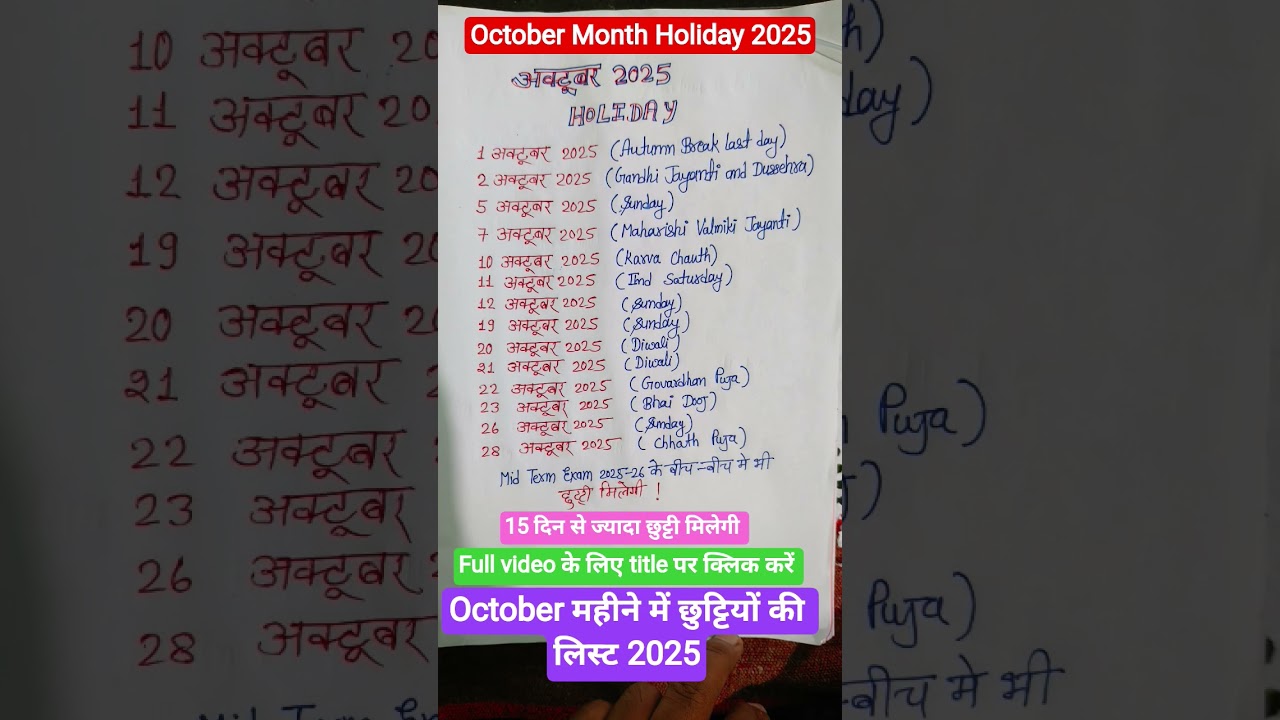 October Month Holiday 2025
अक्टूबर 2025
HOLIDAY
1 अक्टूबर 2025 (Autumn Break last day)
2 अक्टूबर 2025 (Gandhi Jayanti and Dussehra)
5 अक्टूबर 2025 (Sunday)
7 अक्टूबर 2025 (Maharishi Valmiki Jayanti)
10 अक्टूबर 2025 (Karva Chauth)
11 अक्टूबर 2025 (IInd Saturday)
12 अक्टूबर 2025 (Sunday)
19 अक्टूबर 2025 (Sunday)
20 अक्टूबर 2025 (Diwali)
21 अक्टूबर 2025 (Diwali)
22 अक्टूबर 2025 (Govardhan Puja)
23 अक्टूबर 2025 (Bhai Dooj)
26 अक्टूबर 2025 (Sunday)
28 अक्टूबर 2025 (Chhath Puja)
Mid Term Exam 2025-26 के बीच-बीच मे भी
छुट्टी मिलेगी !
15 दिन से ज्यादा छुट्टी मिलेगी
Full video के लिए title पर क्लिक करें
October महीने में छुट्टियों की
लिस्ट 2025
10 अक्टूबर 20
11 अक्टूबर 20
12 अक्टूबर 20
19 अक्टूबर
20 अक्टूबर 2
21 अक्टूबर
22 अक्टूबर
23 अक्टूबर
26 अक्टूबर
28 अक्टूबर
Mid Term Exam
h)
day)
Puja)
Puja)
-बीच मे भी